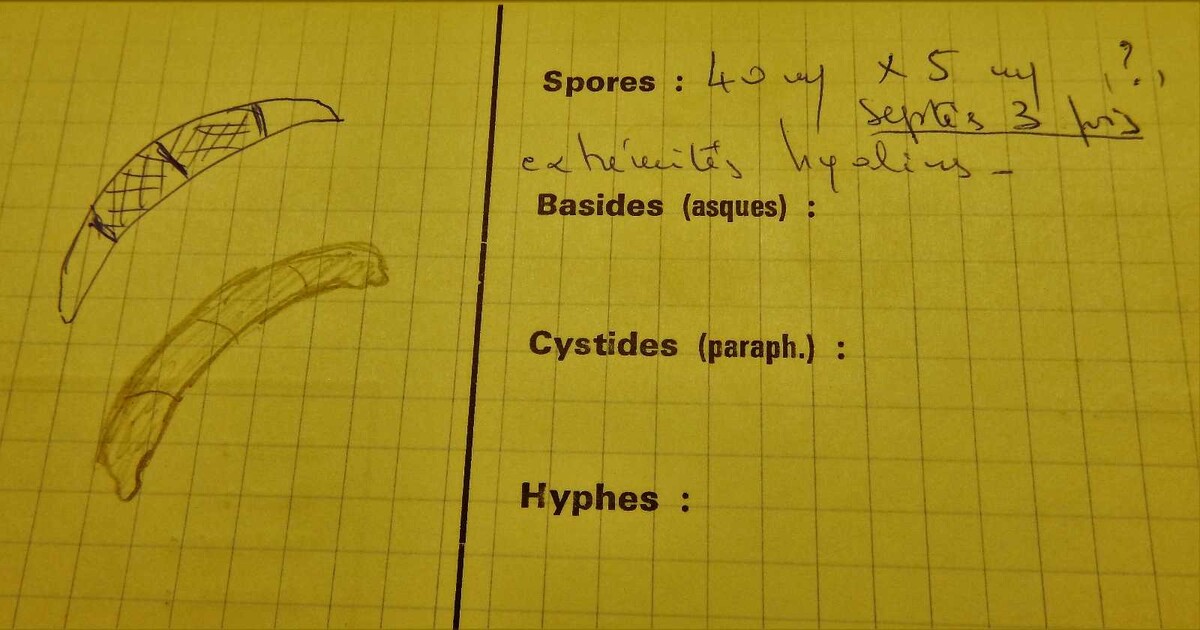 Spores : 40 μ × 5 μ (?)
septés 3 fois
extrémités hyalins -
Basides (asques) :
Cystides (paraph.) :
Hyphes :